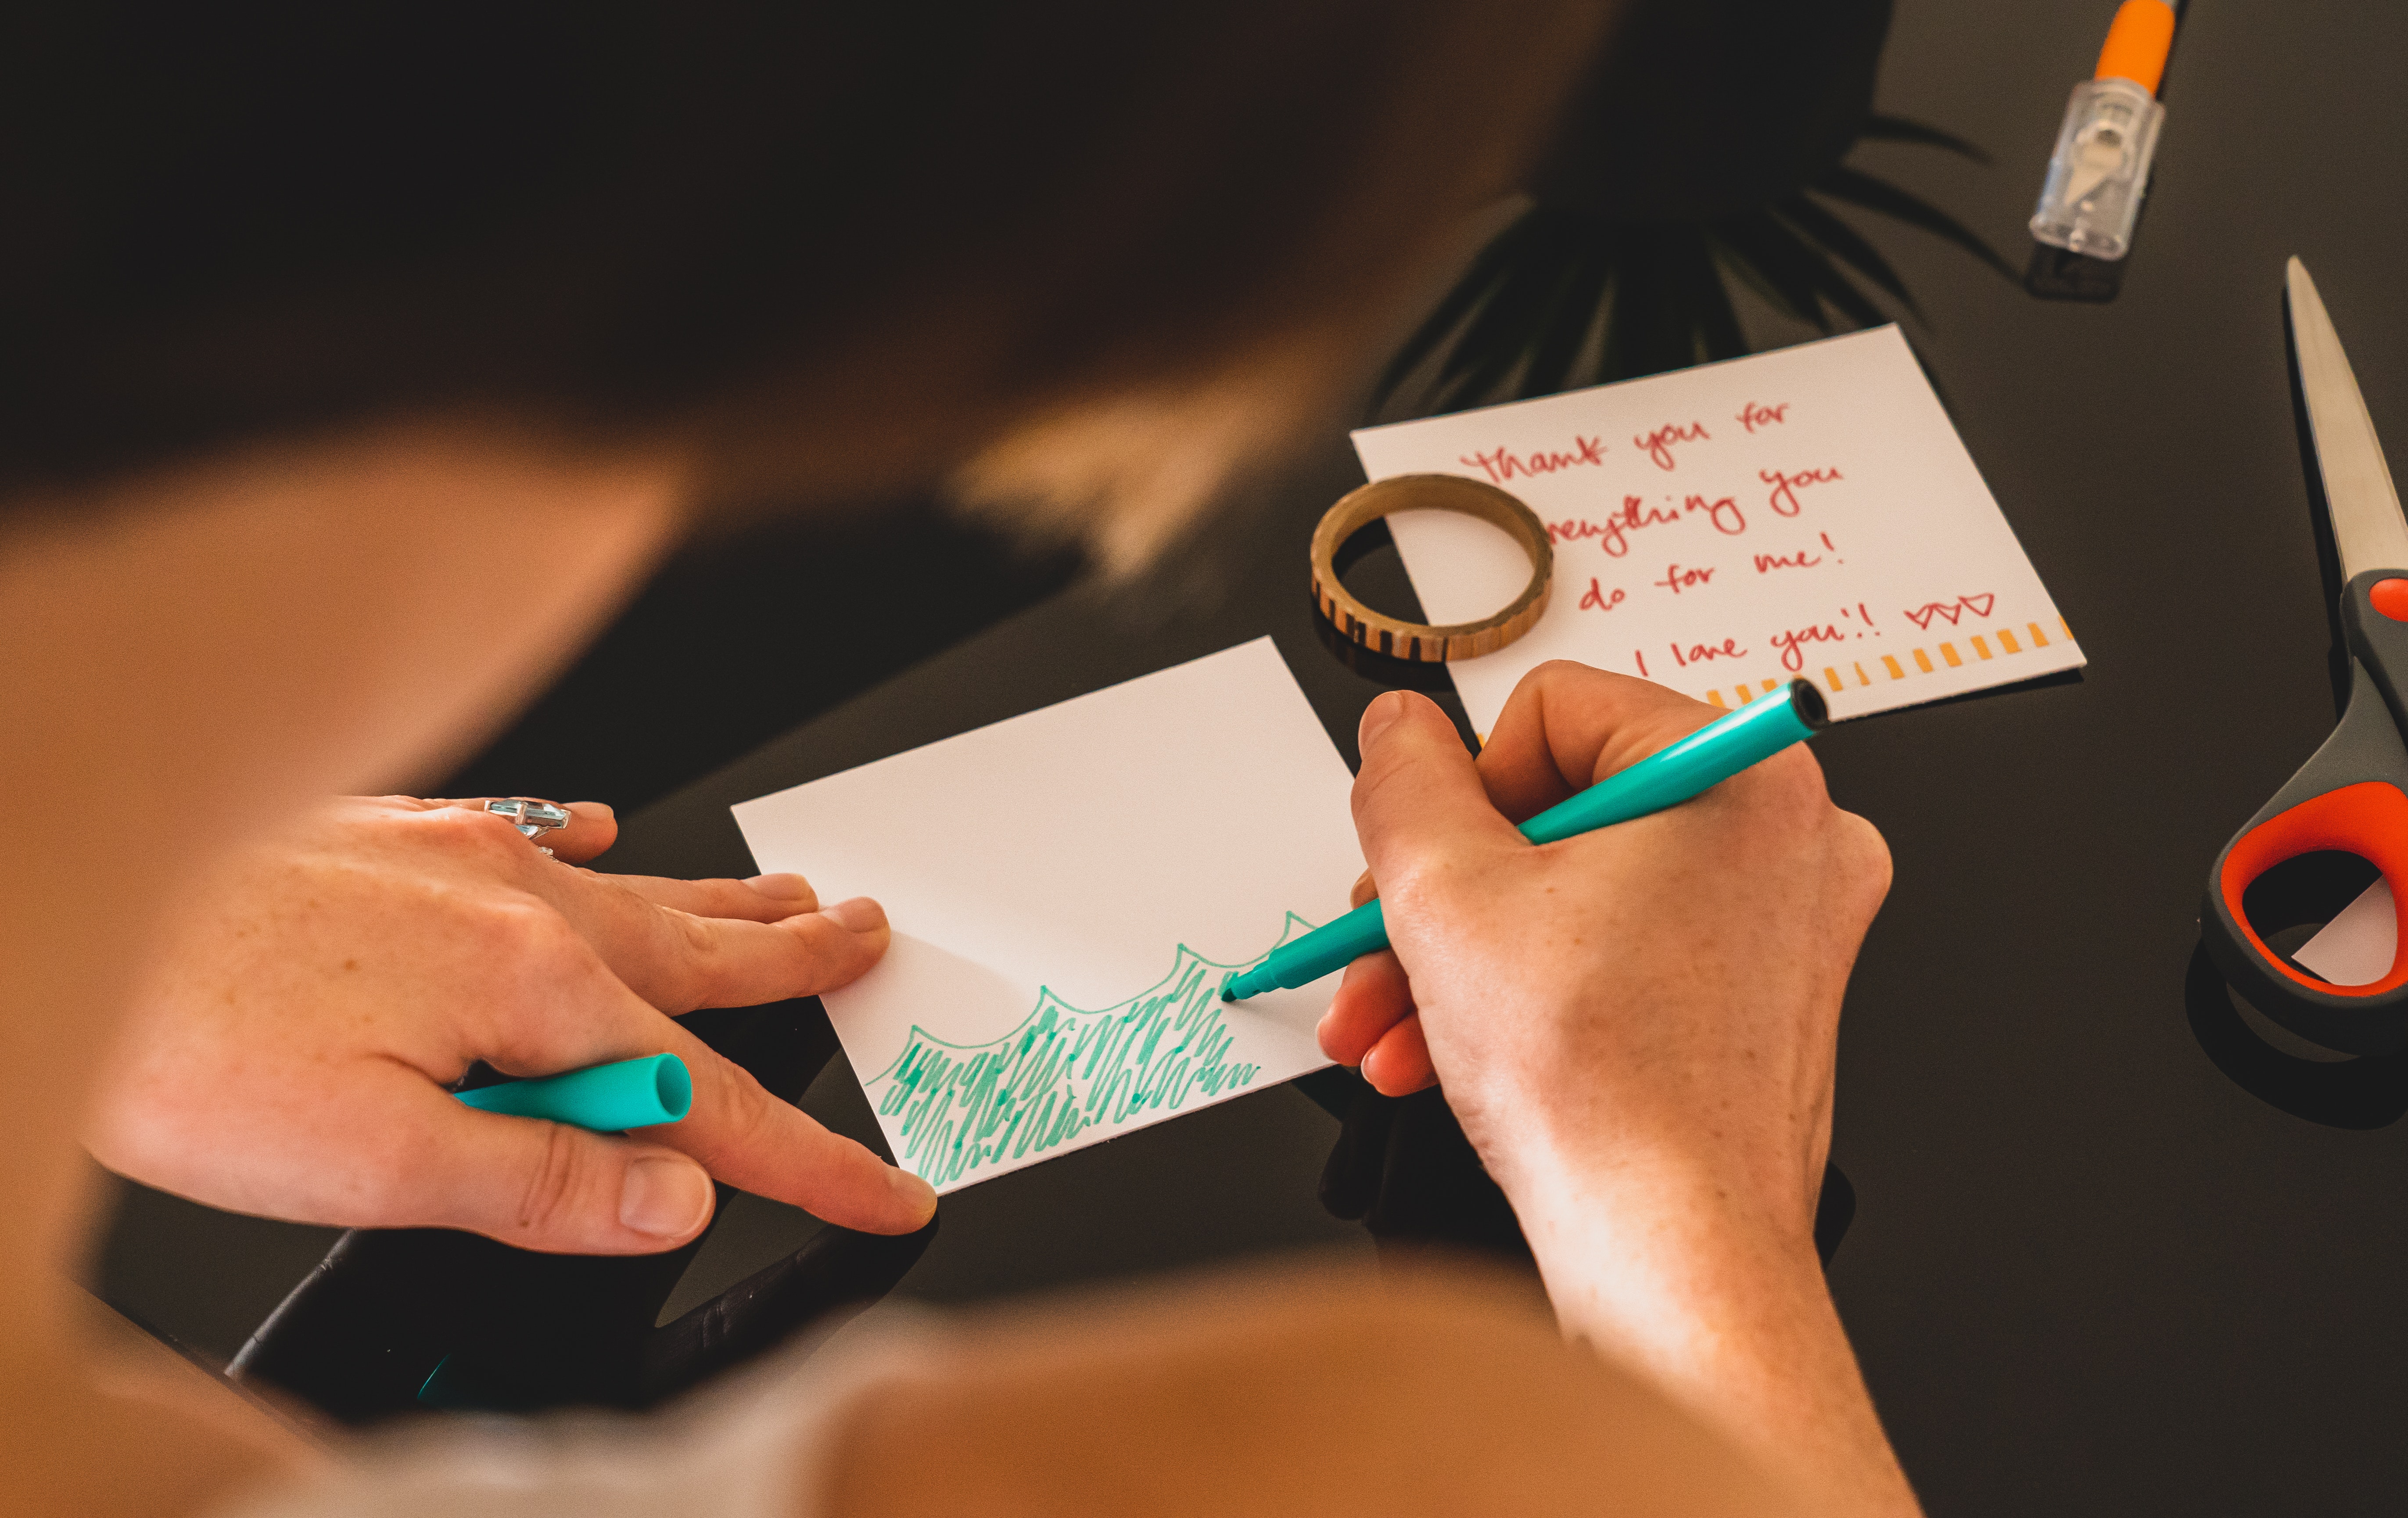 Thank you for
verything you
do for me!
I love you!!